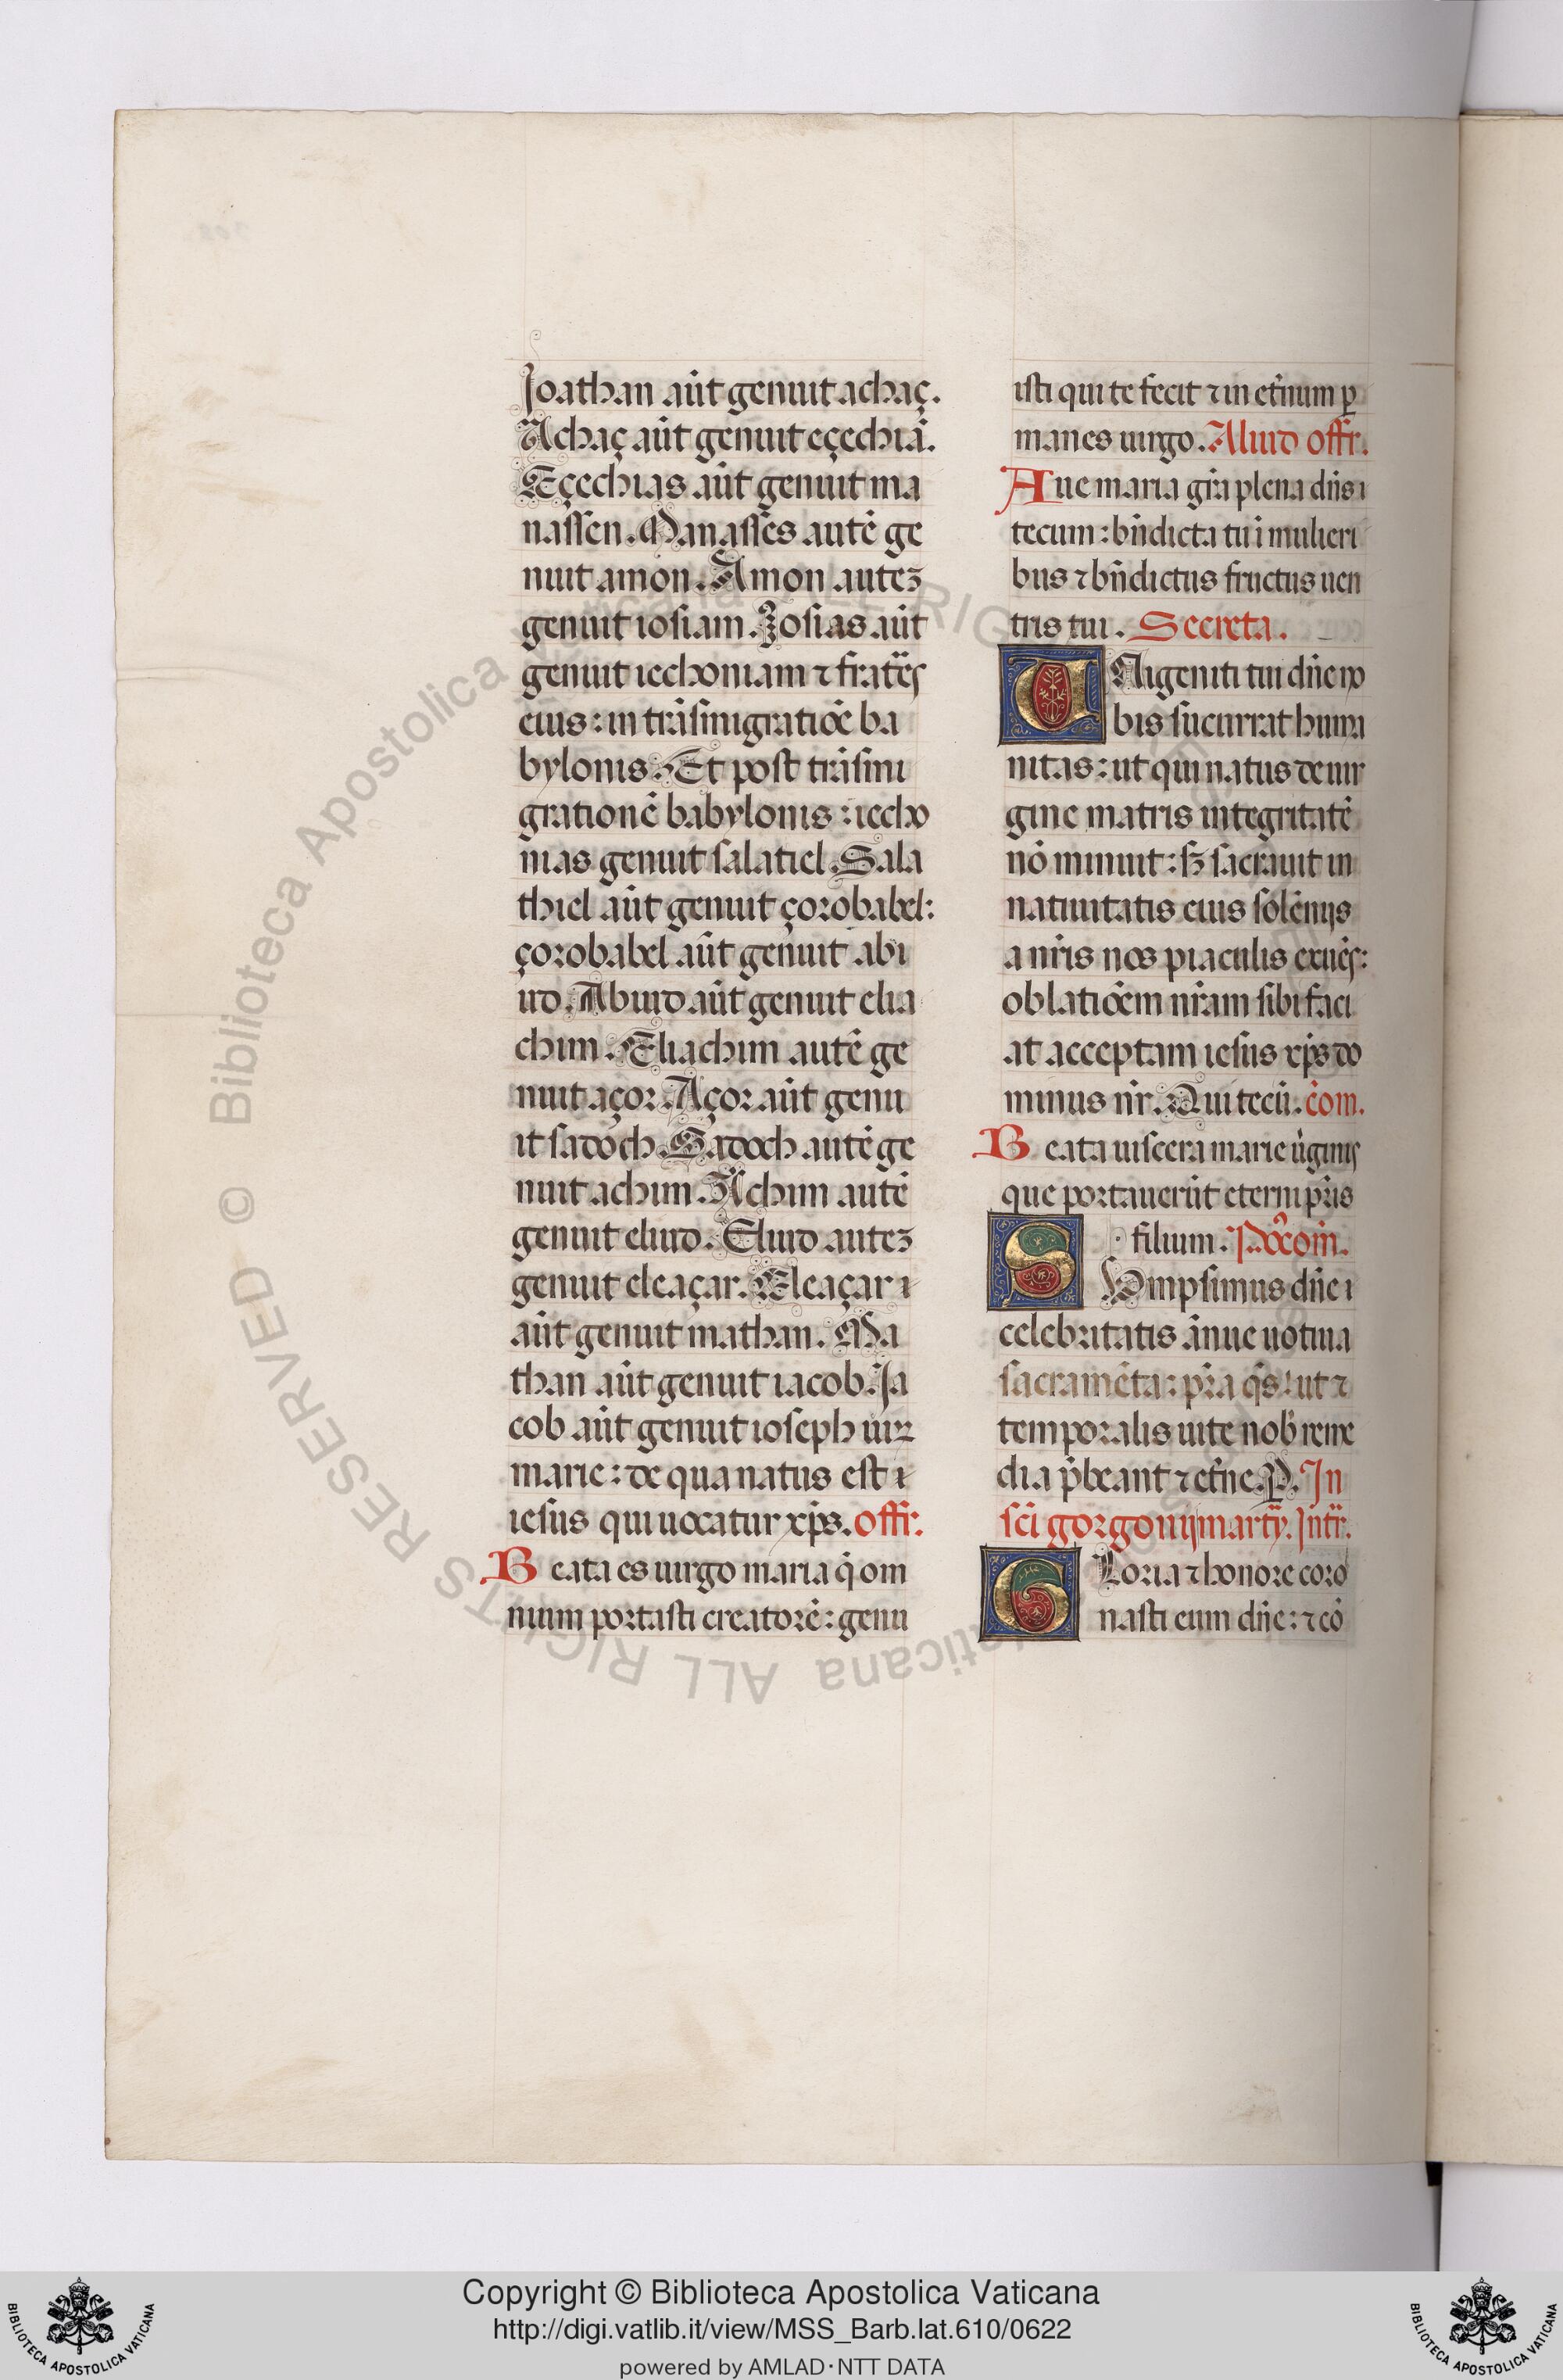 Joathan aut̄ genuit achaç.
Achaç aut̄ genuit eçechiā.
Eçechias aut̄ genuit ma
nassen. Manasses autē ge
nuit amon. Amon autez
genuit iosiam. Iosias aut̄
genuit iechoniam ⁊ fratēs
eius: in trāsmigratiōe ba
bylonis. Et post trāsmi
grationē babylonis: iecho
nias genuit salatiel. Sala
thiel aut̄ genuit çorobabel:
çorobabel aut̄ genuit abi
ud. Abiud aut̄ genuit elia
chim. Eliachim autē ge
nuit açor. Açor aut̄ genu
it sadoch. Sadoch autē ge
nuit achim. Achim autē
genuit eliud. Eliud autez
genuit eleaçar. Eleaçar
aut̄ genuit mathan. Ma
than aut̄ genuit iacob. Ja
cob aut̄ genuit ioseph uir
marie: de qua natus est
iesus qui uocatur xp̄s. offr.
Beata es uirgo maria q̄ om
nium portasti creatorē: genu
isti qui te fecit ⁊ in et̄num ꝑ
manes uirgo. Aliud offr.
Aue maria gr̄a plena dn̄s
tecum: bn̄dicta tu ī mulieri
bus ⁊ bn̄dictus fructus uen
tris tui. Secreta.
UNigeniti tui dn̄e no
bis sucurrat huma
nitas: ut qui natus de uir
gine matris integritatē
nō minuit: sꝫ sacrauit in
natiuitatis eius sōlēnijs
a nr̄is nos piaculis exuēs:
oblatiōem nr̄am sibi faci
at acceptam iesus xp̄s do
minus nr̄. Qui tecū. com̄.
Beata uiscera marie uīginis
que portauerūt eterni pr̄is
filium. Pʾcom̄.
SUmpsimus dn̄e
celebritatis ānue uotiua
sacramēta: pr̄a q̄s: ut ⁊
temporalis uite nob̄ reme
dia p̄beant ⁊ et̄ne. P. In
sc̄i gorgonij marty̅. Intr̄.
GLoria ⁊ honore coro
nasti eum dn̄e: ⁊ cō
© Biblioteca Apostolica Vaticana ALL RIGHTS RESERVED
Copyright © Biblioteca Apostolica Vaticana
http://digi.vatlib.it/view/MSS_Barb.lat.610/0622
powered by AMLAD·NTT DATA
BIBLIOTECA APOSTOLICA VATICANA
BIBLIOTECA APOSTOLICA VATICANA